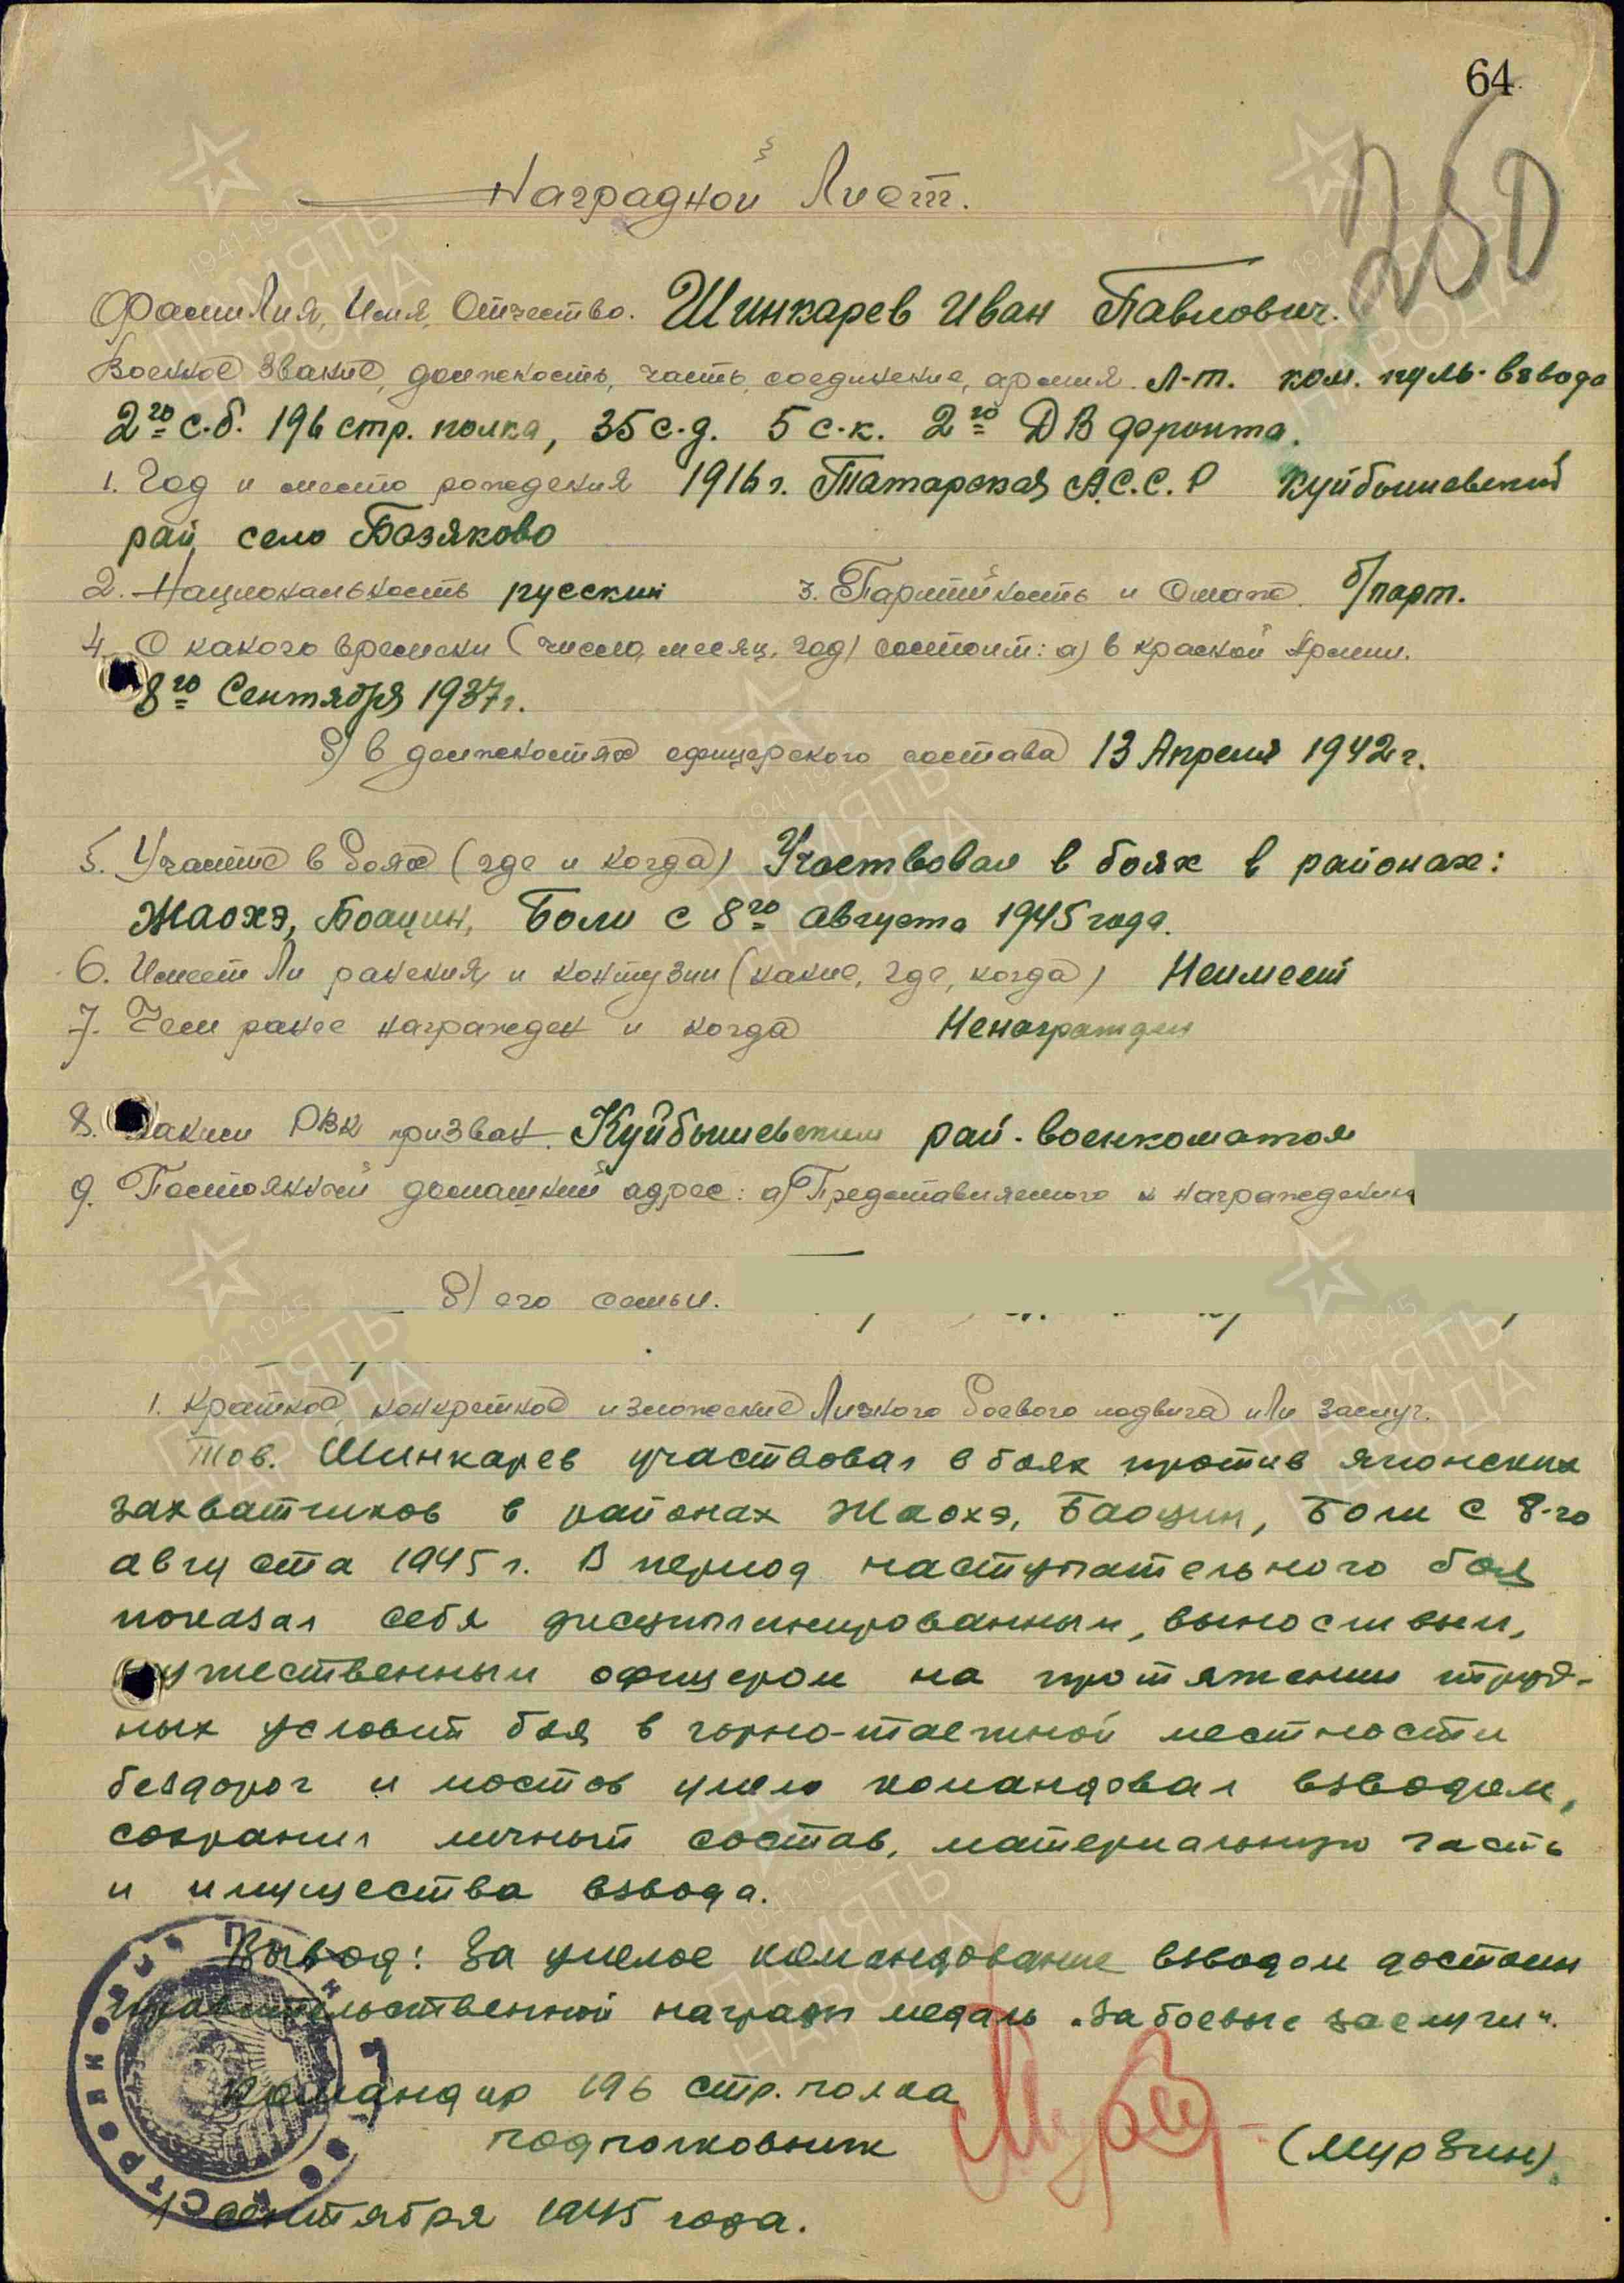 64
250
Наградной Лист.
Фамилия, Имя, Отчество. Шинкарев Иван Павлович.
Военное звание, должность, часть, соединение, армия. Л-т. ком. пуль. взвода
2го с.б. 196 стр. полка, 35 с.д. 5 с.к. 2го ДВ фронта.
1. Год и место рождения 1916 г. Татарская А.С.С.Р Куйбышевский
рай село Базяково
2. Национальность русский 3. Партийность и Стаж б/парт.
4. С какого времени (число, месяц, год) состоит: а) в красной Армии.
8го Сентября 1937 г.
б) в должностях офицерского состава 13 Апреля 1942 г.
5. Участие в боях (где и когда) Участвовал в боях в районах:
Жаохэ, Боацин, Боли с 8го августа 1945 года.
6. Имеет Ли ранения и контузии (какие, где, когда) Неимеет
7. Чем ранее награжден и когда Ненагражден
8. Каким РВК призван. Куйбышевским рай-военкоматом
9. Постоянный домашний адрес: а) Представляемого к награждению
б) его семьи.
1. Краткое, конкретное изложение Личного боевого подвига или заслуг.
Тов. Шинкарев участвовал в боях против японских
захватчиков в районах Жаохэ, Баоцин, Боли с 8-го
августа 1945 г. В период наступательного боя
показал себя дисциплинированным, выносливым,
мужественным офицером на протяжении труд-
ных условий боя в горно-таежной местности
бездорог и мостов умело командовал взводом,
сохранил личный состав, материальную часть
и имущества взвода.
Вывод: За умелое командование взводом достоин
правительственной награды медаль „За боевые заслуги".
Командир 196 стр. полка
подполковник (Мурзин)
1 сентября 1945 года.
ПАМЯТЬ НАРОДА
1941-1945